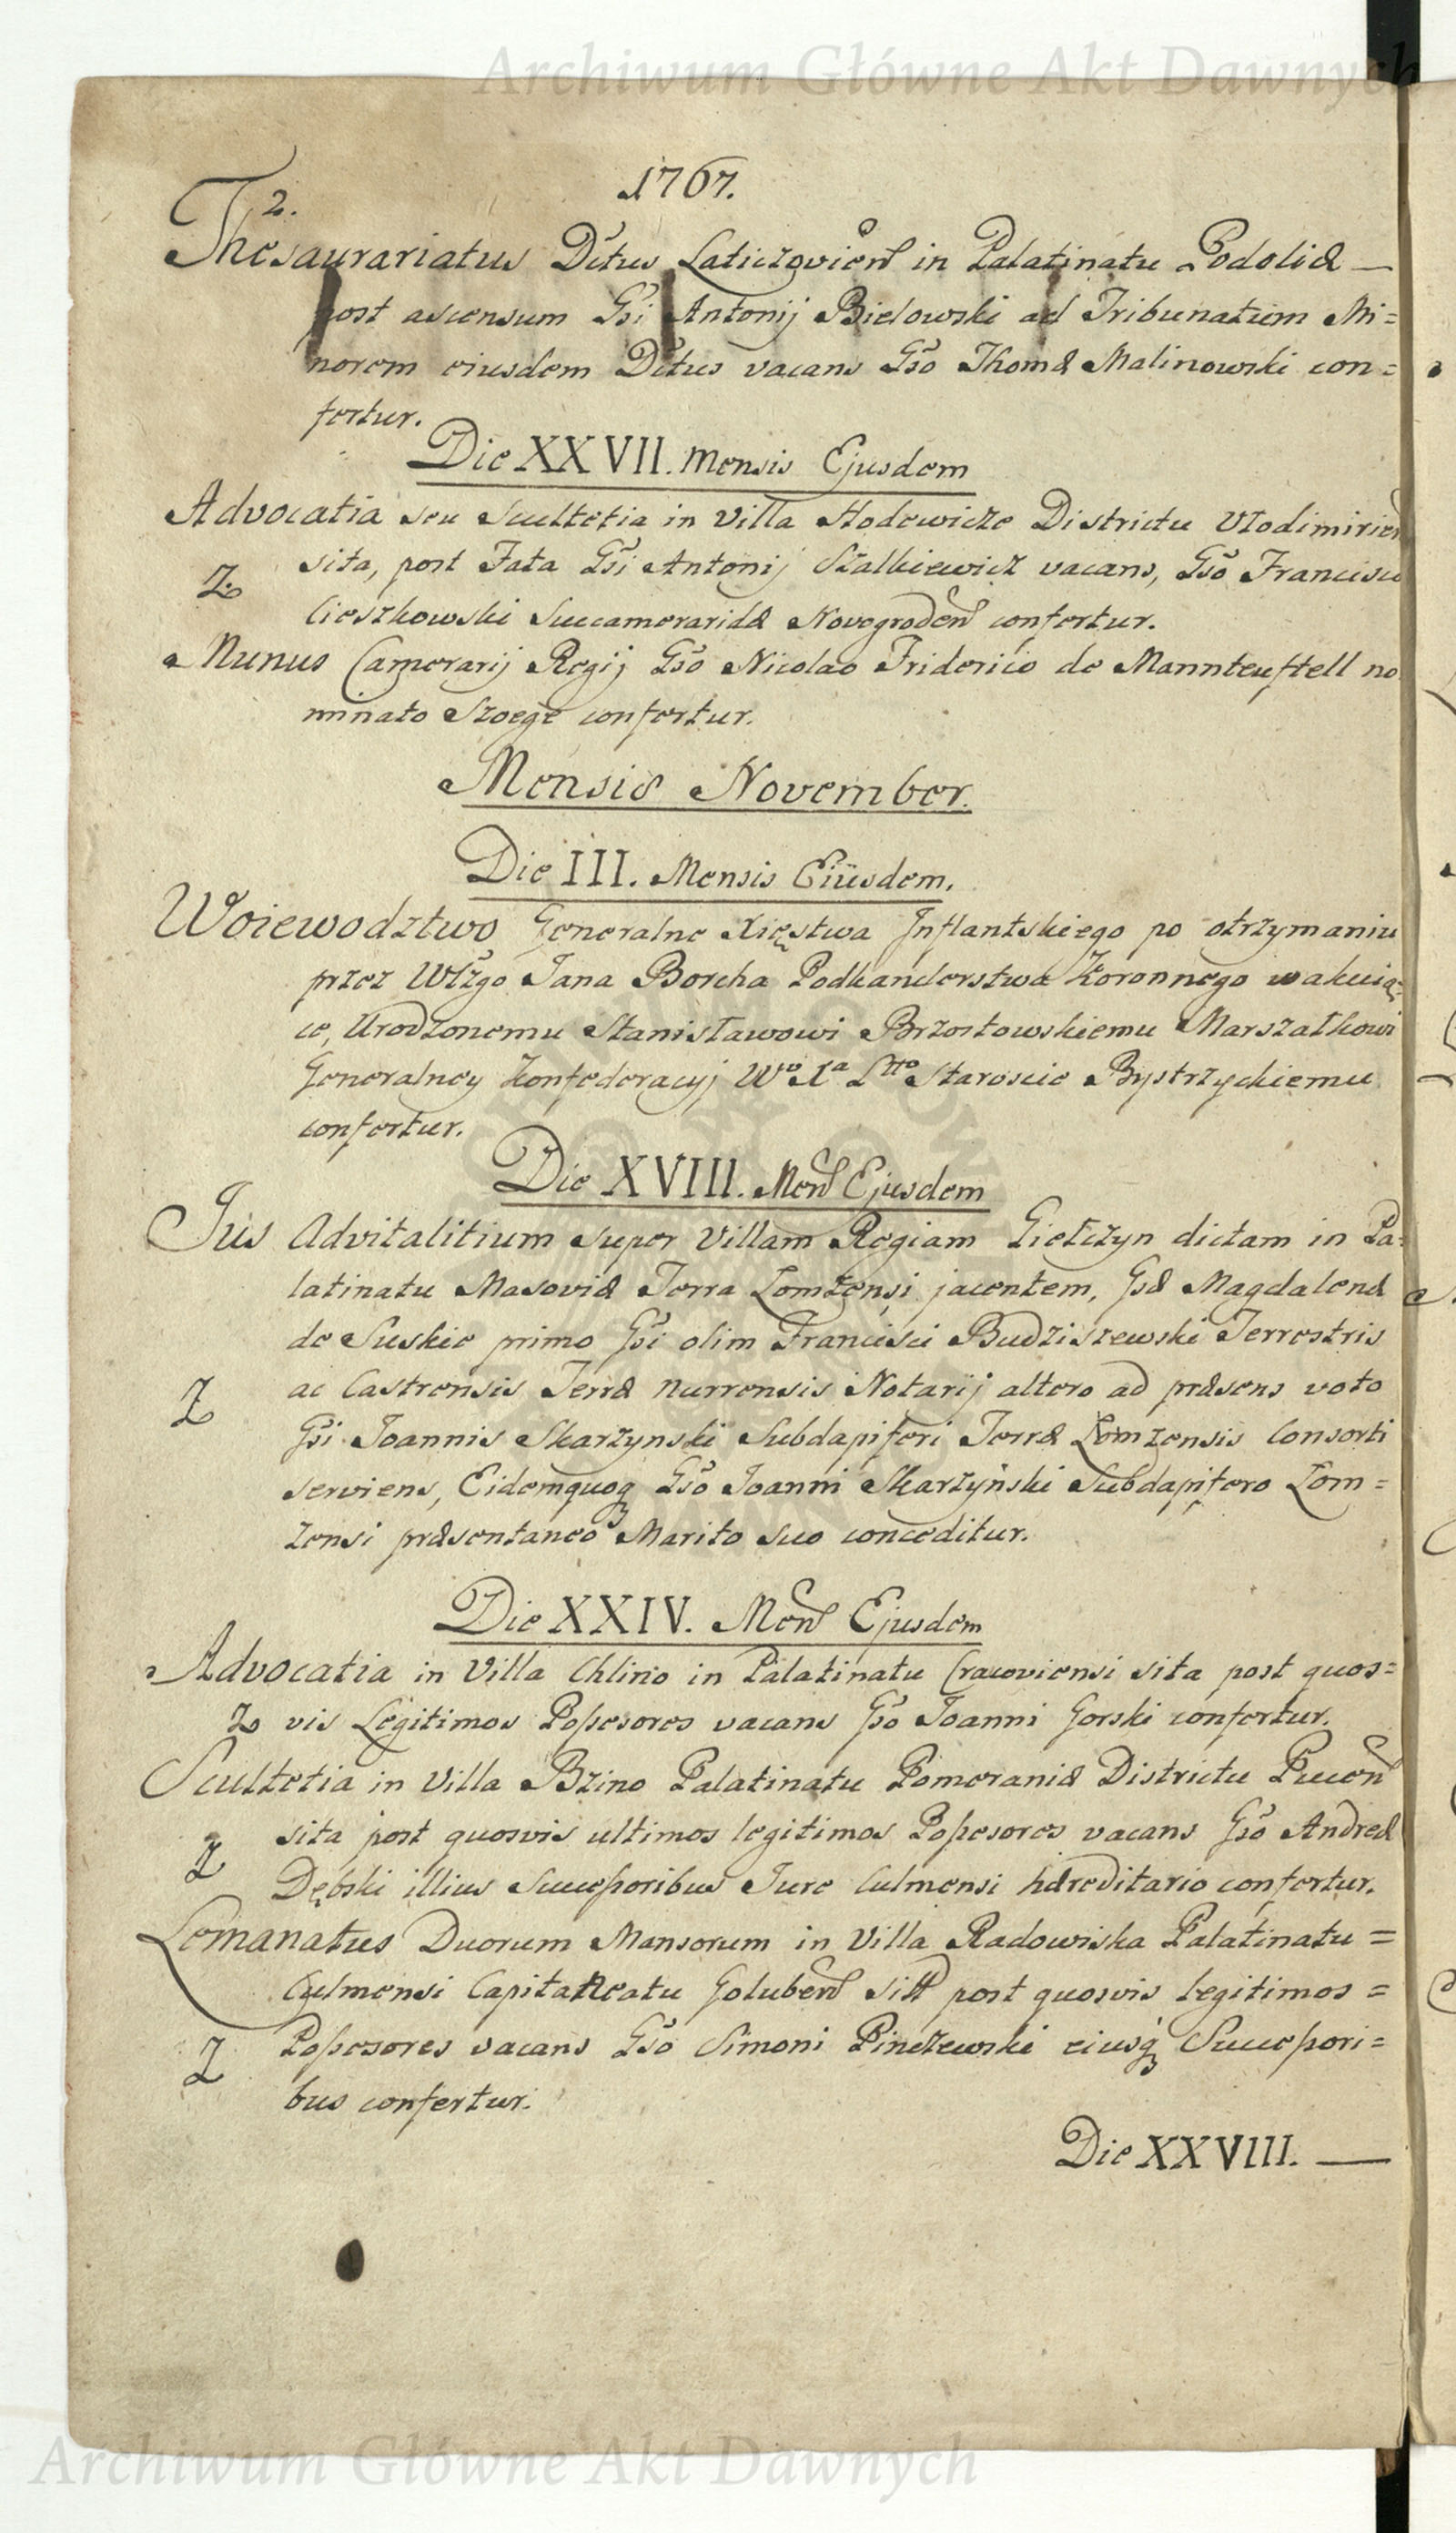 Archiwum Główne Akt Dawnych
1767.
2.
Thesaurariatus Dctus Laticzovien in Palatinatu Podoliæ —
post ascensum Gsi Antonij Bielowski ad Tribunatum Mi=
norem eiusdem Dctus vacans Gso Thomæ Malinowski con=
fertur.
Die XXVII. Mensis Ejusdem
Advocatia seu Scultetia in Villa Hodewicze Districtu Vlodimirien
sita, post Fata Gsi Antonij Szalkiewicz vacans, Gso Francisco
Cieszkowski Succameraridæ Novogroden confertur.
Z
Munus Camerarij Regij Gso Nicolao Friderico de Mannteuffell no
minato Szoege confertur.
Mensis November.
Die III. Mensis Eiüsdem.
Woiewodztwo Generalne Xięstwa Inflantskiego po otrzymaniu
przez Wlżgo Jana Borcha Podkanclerstwa Koronnego wakuią=
ce, Urodzonemu Stanisławowi Brzostowskiemu Marszałkowi
Generalney Konfederacyj Wo Xa Ltto Staroscie Bystrzyckiemu
confertur.
Die XVIII. Men Ejusdem
Jus Advitalitium super Villam Regiam Giełczyn dictam in Pa=
latinatu Masoviæ Terra Lomżensi jacentem, Gsæ Magdalenæ
de Suskie primo Gsi olim Francisci Budziszewski Terrestris
ac Castrensis Terræ Nurrensis Notarij altero ad præsens voto
Z
Gsi Joannis Skarzynski Subdapiferi Terræ Lomzensis Consorti
serviens, Eidemquoq Gso Joanni Skarzyński Subdapifero Lom=
zensi præsentaneo Marito suo conceditur.
Die XXIV. Men Ejusdem
Advocatia in Villa Chlino in Palatinatu Cracoviensi sita post quos=
Z vis Legitimos Possesores vacans Gso Joanni Gorski confertur.
Scultetia in Villa Brzino Palatinatu Pomeraniæ Districtu Pucen
sita post quosvis ultimos legitimos Possesores vacans Gso Andreæ
Z
Dębski illius Successoribus Jure Culmensi hæreditario confertur.
Lemanatus Duorum Mansorum in Villa Radowiska Palatinatu =
Culmensi Capitaneatu Goluben sitt post quosvis legitimos =
Z Possesores vacans Gso Simoni Pinczewski eiusq Successori=
bus confertur.
Die XXVIII. —
Archiwum Główne Akt Dawnych